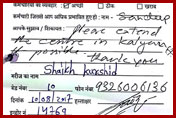 कर्मचारियों का व्यवहार अच्छी ठीक खराब
कर्मचारी जिससे आप अधिक प्रभावित हुए हो : नाम - Sandeep
आपके सुझाव / शिकायत : Please extend
the centre in Kalyan
if possible. thank you
Shaikh Kurshid
मरीज का नाम
बेड नंबर 10 फोन नंबर 9326006136
दिनांक 10/08/2017 हस्ताक्षर
नंबर 14769